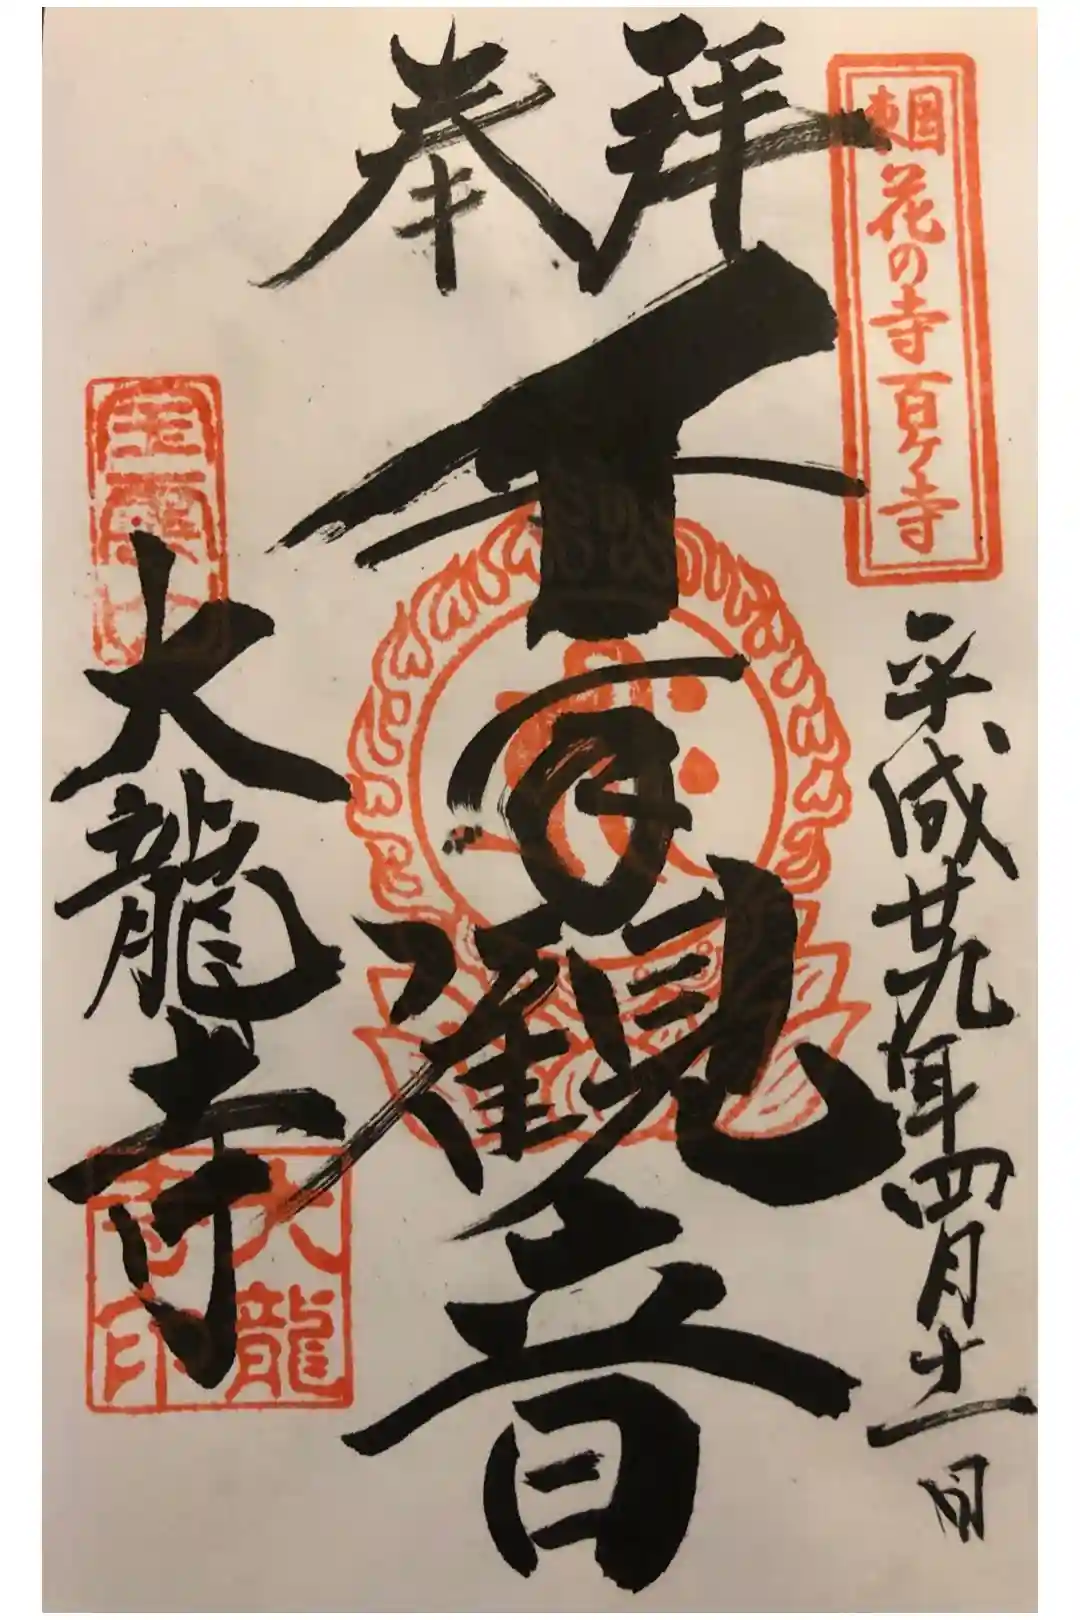 東国花の寺百ヶ寺
平成廿九年四月十一日
奉拝
千手観音
大龍寺
大龍
寺印